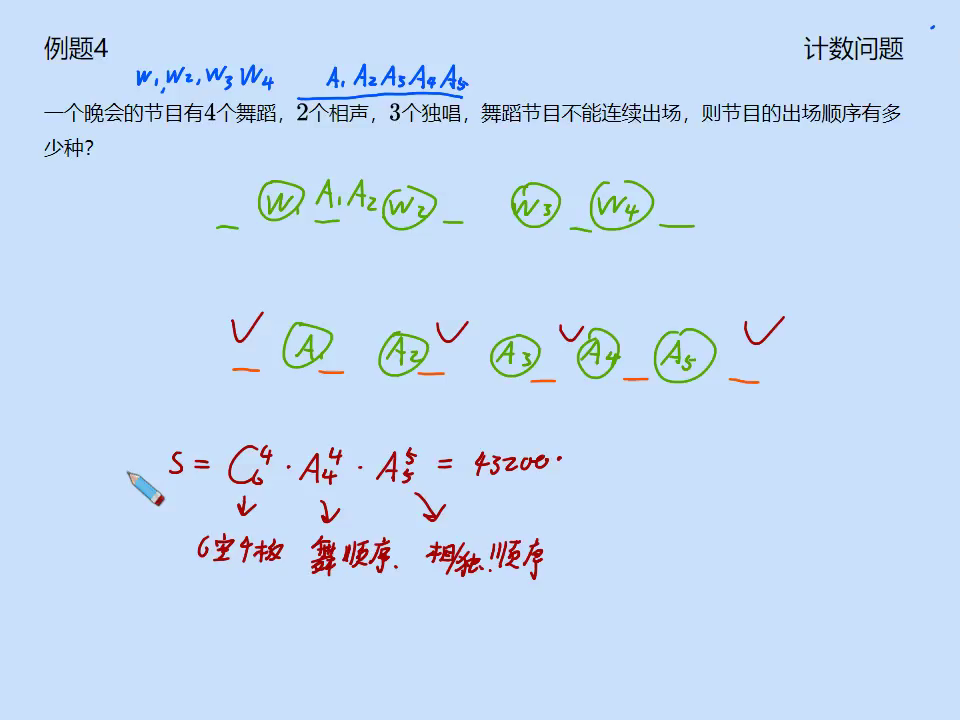 例题4 计数问题
W₁, W₂, W₃ W₄ A₁ A₂ A₃ A₄ A₅
一个晚会的节目有4个舞蹈，2个相声，3个独唱，舞蹈节目不能连续出场，则节目的出场顺序有多
少种？
_ W₁ A₁ A₂ W₂ _ W₃ _ W₄ _
✓ A₁ _ A₂ ✓ A₃ ✓ A₄ _ A₅ ✓
S = C₆⁴ · A₄⁴ · A₅⁵ = 43200.
↓ ↓ ↓
6空4板 舞顺序. 相/独.顺序